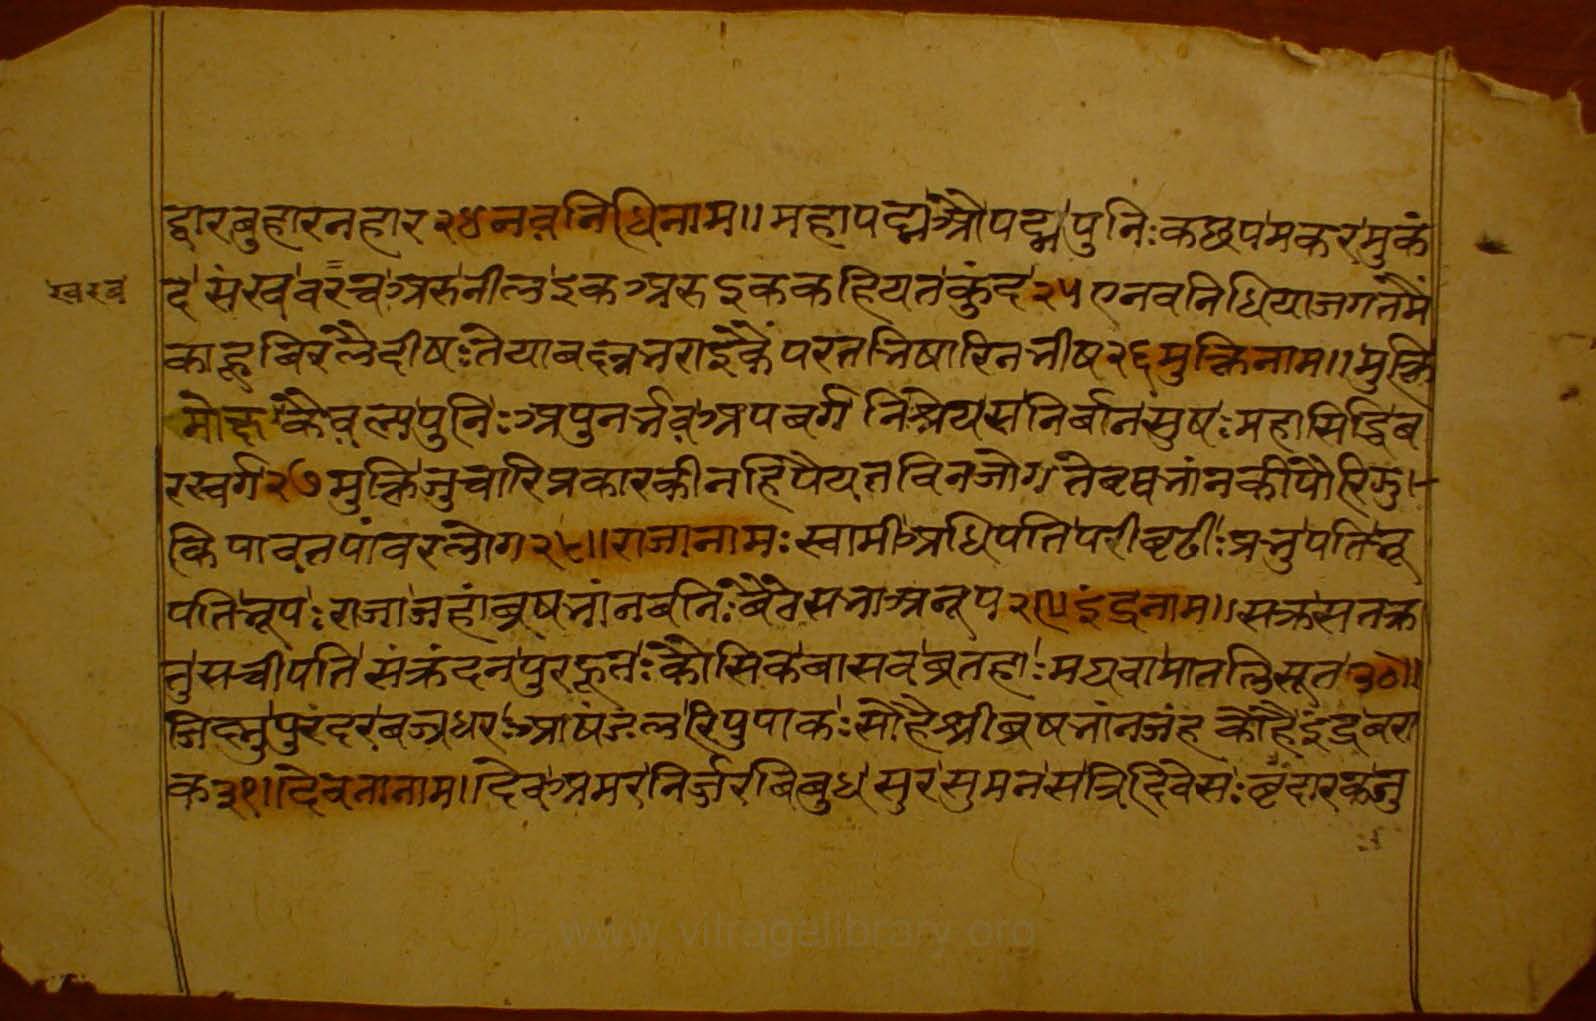 द्वार बुहारनहार २४ नव निधि नाम॥ महापद्म औ पद्म पुनिः कछप मकर मुकं
खरब
द संख वरच्च अरु नील इक अरु इक कहियत कुंद २५ ए नव निधि या जगत मैं
काहू बिरलै दीषः तेया बदन्नभराइकैं परत भिषारिन भीष २६ मुक्ति नाम॥ मुक्ति
मोक्ष कैवल्य पुनिः अपुनर्भव अपबर्ग निश्रेयस निर्बान सुषः महासिद्धि ब
र स्वर्ग २७ मुक्ति जु चारि प्रकार की नहिं पैयत विन जोग ते बृषभांन की पौरि झु
कि पावत पांवर लोग २८॥ राजा नामः स्वामी अधिपति परीबृढीः प्रभु पति भू
पति भूपः राजा जहां ब्रषभांन बनिः बैठे सभा अनूप २९ इंद्र नाम॥ सक्र सतक्र
तु सचीपति संक्रंदन पुरहूतः कौसिक बासव ब्रतहाः मघवा मातलि सूत ३०॥
जिस्नु पुरंदर बज्रधर आषंडल रिपु पाकः सोहै श्री ब्रषभांन जंह को है इंद्र बरा
क ३१॥ देवता नाम॥ देव अमर निर्जर बिबुध सुर सुमनस त्रिदिवेसः बृंदारक जु
www.vitragelibrary.org